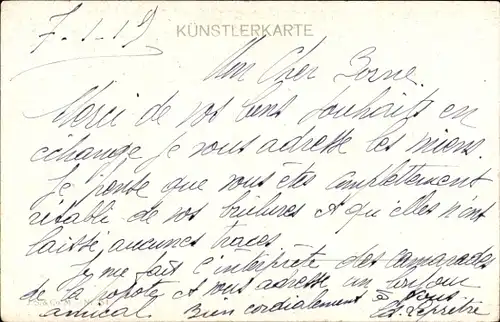 7-1-19
KÜNSTLERKARTE
Mon Cher Borne.
Merci de vos bons souhaits en
échange je vous adresse les miens.
Je pense que vous êtes complettement
rétabli de vos brûlures et qu'elles n'ont
laissé, aucunes traces.
Je me fait l'interprète des camarades
de la popote et vous adresse un bonjour
amical. Bien cordialement à Vous